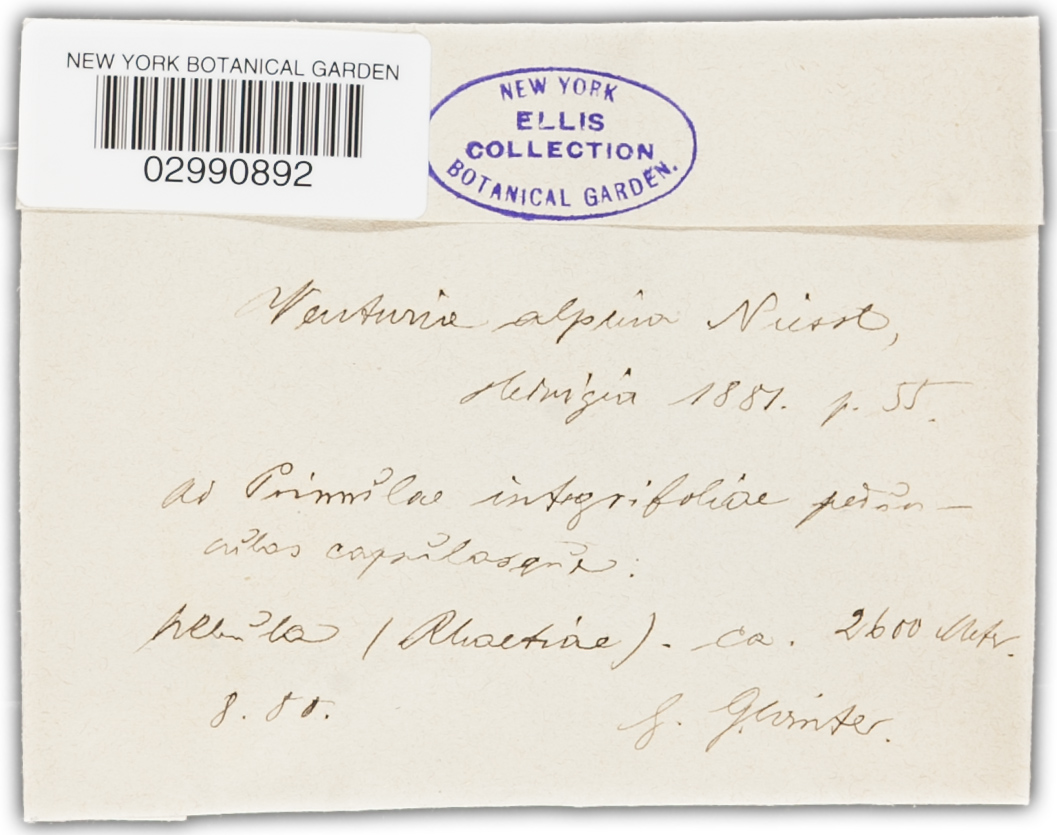 NEW YORK BOTANICAL GARDEN
02990892
NEW YORK
ELLIS
COLLECTION
BOTANICAL GARDEN.
Venturia alpina Niessl,
Hedwigia 1881. p. 55.
ad Primulae integrifoliae pedun-
culos capsulasque:
Albula (Rhaetiae). ca. 2600 Meter.
8. 80.
G. Winter.